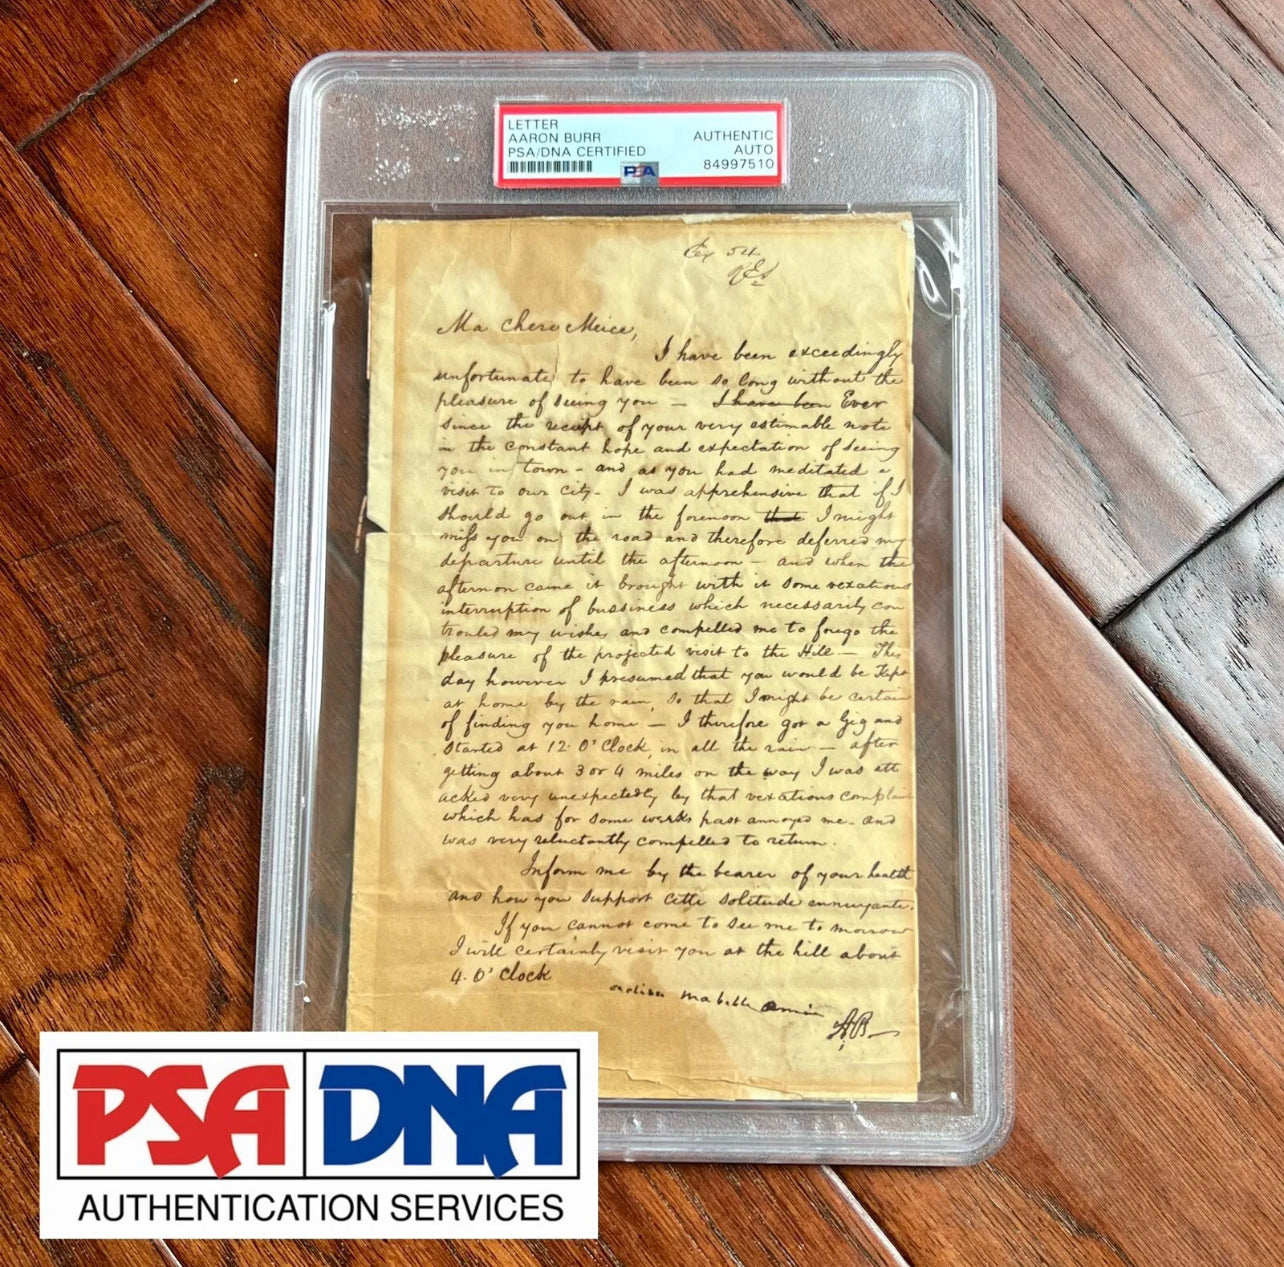 LETTER
AARON BURR
PSA/DNA CERTIFIED
AUTHENTIC
AUTO
84997510
PSA
Ex 54
Ma chere Meice,
I have been exceedingly
unfortunate to have been so long without the
pleasure of seeing you — I have been Ever
since the receipt of your very estimable note
in the constant hope and expectation of seeing
you in town - and as you had meditated a
visit to our city - I was apprehensive that if I
should go out in the forenoon that I might
miss you on the road and therefore deferred my
departure until the afternoon - and when the
afternoon came it brought with it some vexatious
interruption of bussiness which necessarily con
trouled my wishes and compelled me to forego the
pleasure of the projected visit to the Hill — This
day however I presumed that you would be Kept
at home by the rain, so that I might be certain
of finding you home — I therefore got a Gig and
started at 12. O'Clock, in all the rain — after
getting about 3 or 4 miles on the way I was att
acked very unexpectedly by that vexatious complain
which has for some weeks past annoyed me - and
was very reluctantly compelled to return.
Inform me by the bearer of your health
and how you support cette solitude ennuyante.
If you cannot come to see me to morrow
I will certainly visit you at the hill about
4. O'Clock
ma belle amie
A, B
PSA DNA
AUTHENTICATION SERVICES